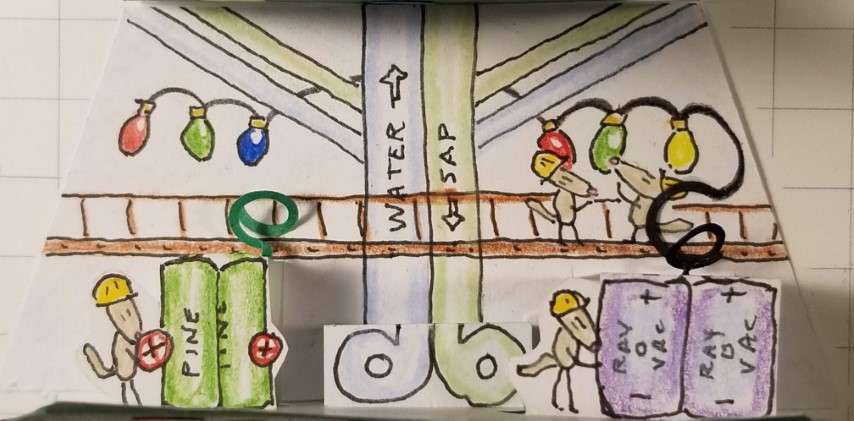 WATER
SAP
PINE
+
RAY
O
VAC
−
+
RAY
B
VAC
−